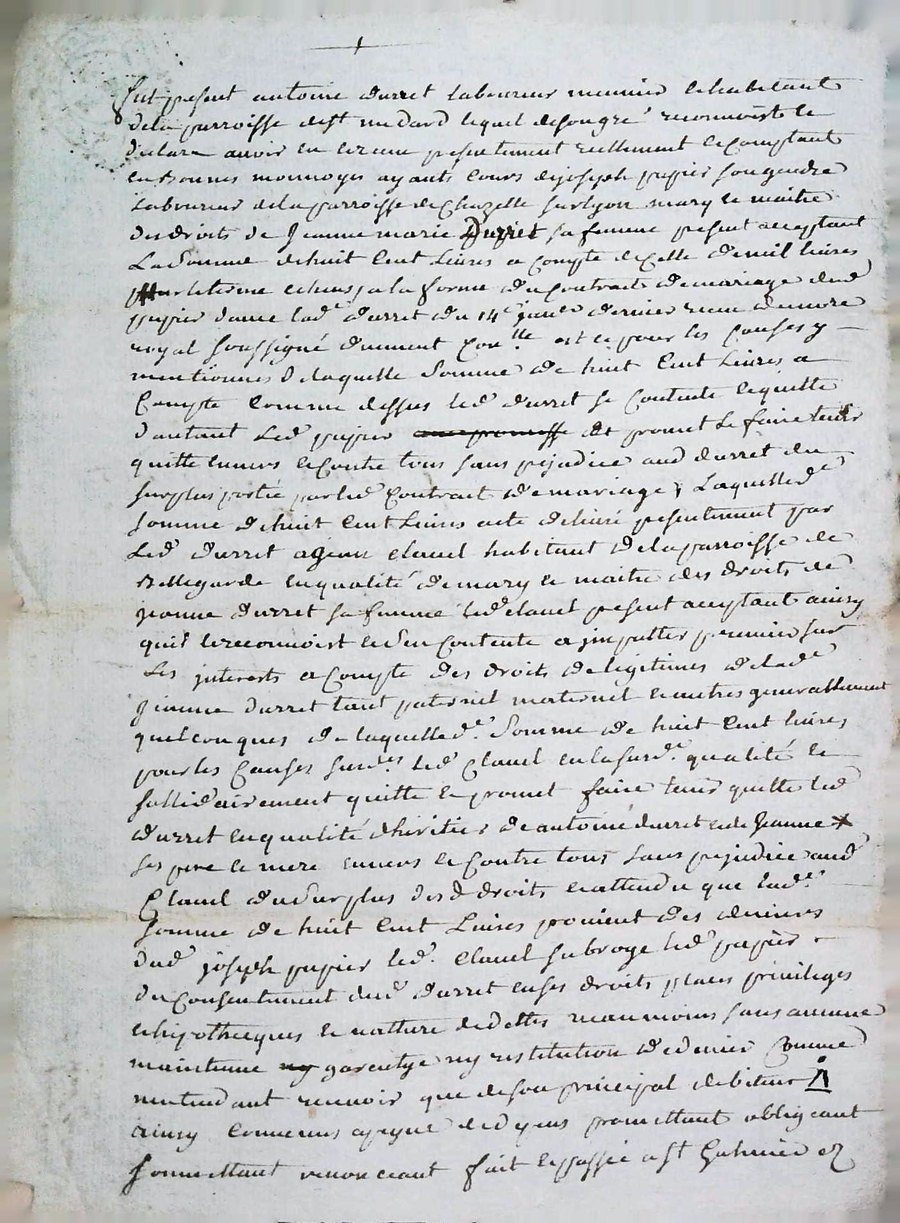 fut present antoine durret laboureur meunier et habitant
de la parroisse de st medard lequel de son gré reconnoist et
declare avoir eu et receu presentement reellement et comptant
en bonnes monnoyes ayants cours de joseph pupier son gendre
laboureur de la parroisse de Chazelle sur lyon mary et maitre
des droits de Jeanne marie Durret sa femme present acceptant
La Somme de huit Cent Livres a Compte de Celle de mil livres
pour le terme echeus a la forme du Contrat de mariage dud
pupier d'avec lad durret du 14e janer dernier receu de
royal soussigné duement Conlle et ce pour les Causes y
mentionnes De laquelle Somme de huit Cent Livres a
Compte Comme dessus led durret se Contente et quitte
d'autant Led pupier et promet Le faire tenir
quitte envers et Contre tous sans prejudice aud durret du
surplus porté par led Contrat de mariage, Laquelle de
somme de huit Cent Livres a été delivré presentement par
Led durret a Clavel habitant de la parroisse de
Bellegarde en qualité de mary et maitre des droits de
jeanne durret sa femme led Clavel present acceptant ainsy
quil le reconnoist et sen Contente a imputter premier sur
Les interests a Compte des droits de legitimes de lade
jeanne durret tant paternel maternel et autres generallement
quelconques de laquelle de. Somme de huit Cent livres
pour les Causes susdes led Clavel en la susde. qualité et
sollidairement quitte et promet faire tenir quitte led
durret en qualité dheritier de antoine durret et de Jeanne x
ses pere et mere envers et Contre tous sans prejudice aud
Clavel du Surplus desd droits et attendu que lade
somme de huit Cent Livres provient des deniers
dud joseph pupier led. Clavel subroge led pupier
du Consentement dud durret en ses droits places privileges
et hipotheques et natture de dettes neanmoins sans aucune
maintenue ny garentye ny restitution de denier Comme
nentendant recevoir que de son principal debiteur
ainsy Convenus promettant obligeant
soumettant renonceant fait et passé a st Galmier